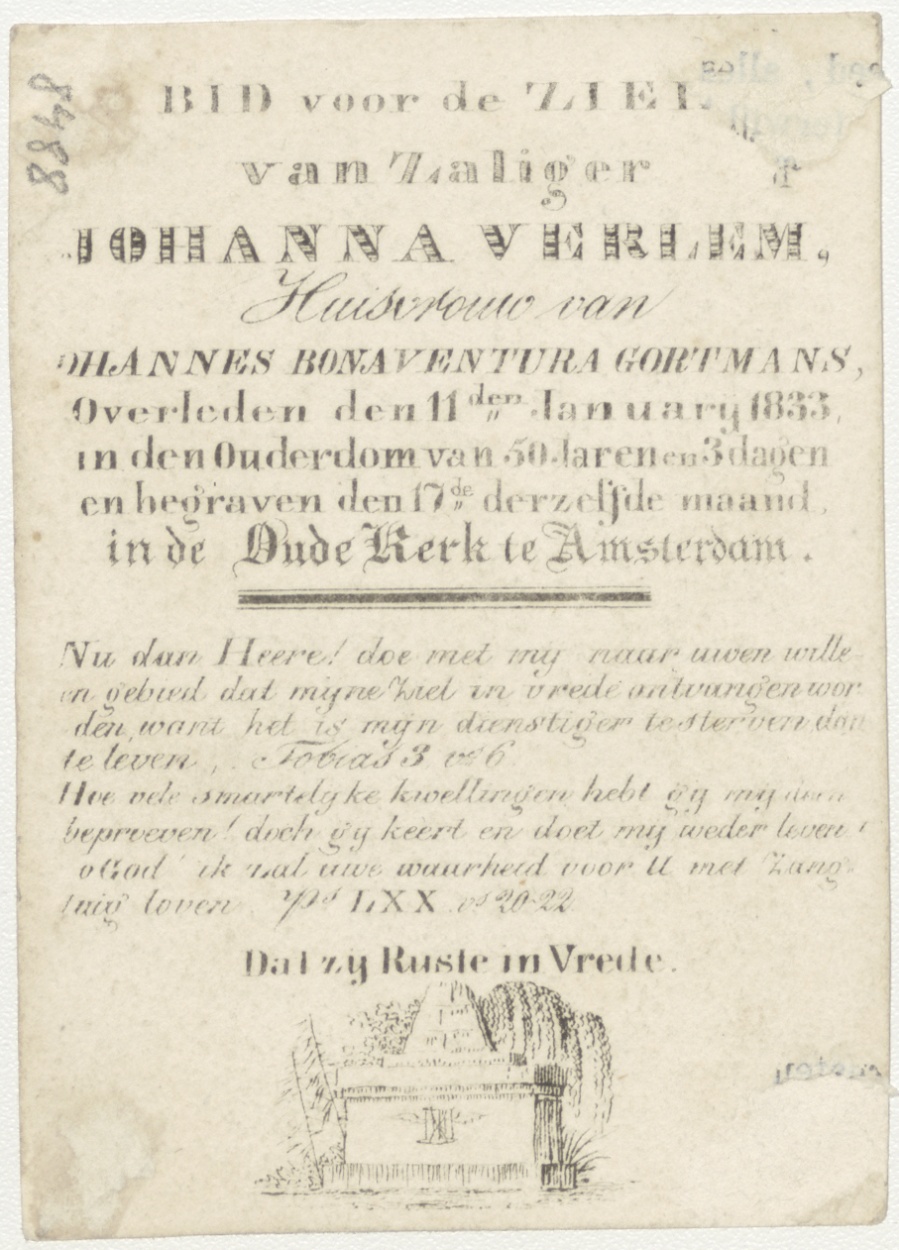 BID voor de ZIEL
van Zaliger
JOHANNA VERLEM,
Huisvrouw van
OHANNES BONAVENTURA GORTMANS,
Overleden den 11den January 1833,
in den Ouderdom van 50 Jaren en 3 dagen
en begraven den 17de derzelfde maand,
in de Oude Kerk te Amsterdam.
Nu dan Heere! doe met mij naar uwen wille
en gebied dat mijne Ziel in vrede ontvangen wor
den, want het is mijn dienstiger te sterven dan
te leven, Tobias 3 vs 6
Hoe vele smartelyke kwellingen hebt gy my doen
beproeven! doch gy keert en doet my weder leven!
o God! ik zal uwe waarheid voor U met Zang
tuig loven. Ps LXX vs 20-22
Dat zy Ruste in Vrede.
8488